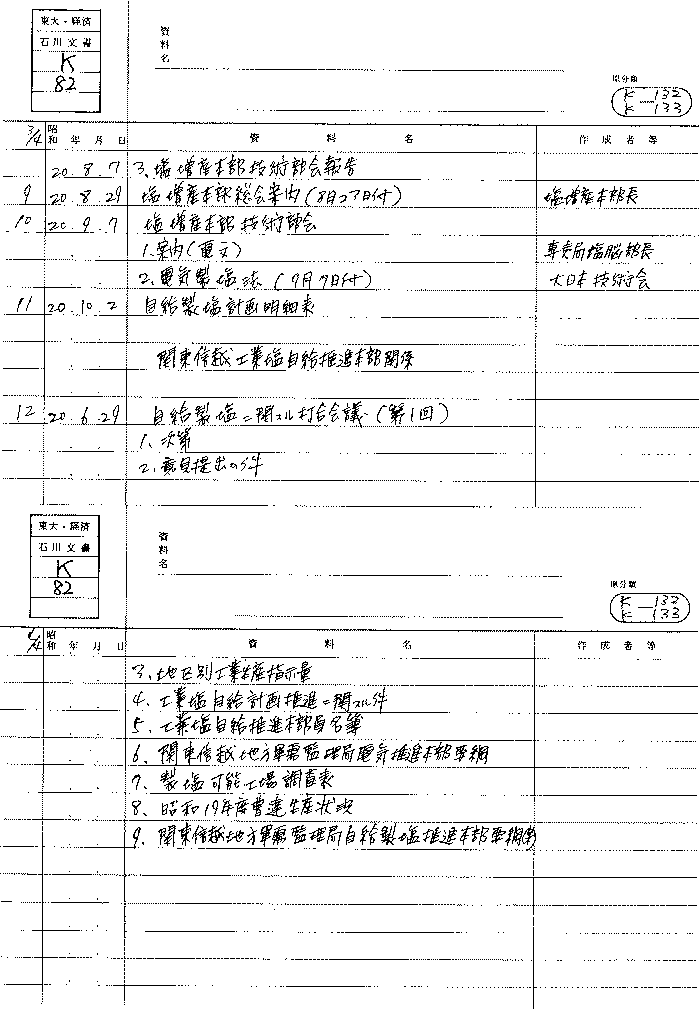 東大・経済
石川文書
K
82
資料名
原分類
K-132
K-133
3/4 昭和 年 月 日 資料名 作成者等
20.8.7 3.塩増産本部技術部会報告
9 20.8.29 塩増産本部総会案内(8月23日付) 塩増産本部長
10 20.9.7 塩増産本部技術部会
1.案内(電文) 専売局塩脳部長
2.電気製塩法(9月7日付) 大日本技術会
11 20.10.2 自給製塩計画明細表
関東信越工業塩自給推進本部関係
12 20.6.29 自給製塩ニ関スル打合会議(第1回)
1.次第
2.意見提出の件
東大・経済
石川文書
K
82
資料名
原分類
K-132
K-133
4/4 昭和 年 月 日 資料名 作成者等
3.地区別工業生産指示量
4.工業塩自給計画推進ニ関スル件
5.工業塩自給推進本部員名簿
6.関東信越地方軍需監理局電気推進本部要綱
7.製塩可能工場調査表
8.昭和19年度曹達生産状況
9.関東信越地方軍需監理局自給製塩推進本部要綱